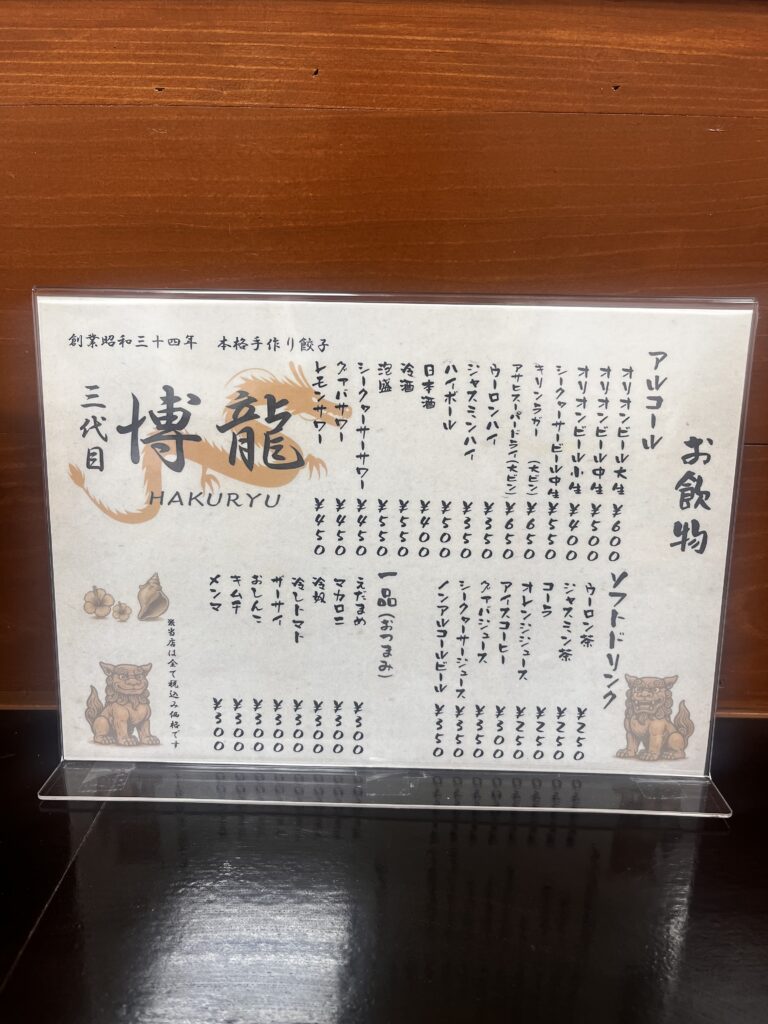 お飲物
アルコール
オリオンビール大生 ¥600
オリオンビール中生 ¥500
オリオンビール小生 ¥400
シークァーサービール中生 ¥550
キリンラガー (大ビン) ¥650
アサヒスーパードライ(大ビン) ¥650
ウーロンハイ ¥350
ジャスミンハイ ¥350
ハイボール ¥500
日本酒 ¥400
冷酒 ¥550
泡盛 ¥550
シークァーサーサワー ¥450
グァバサワー ¥450
レモンサワー ¥450
ソフトドリンク
ウーロン茶 ¥250
ジャスミン茶 ¥250
コーラ ¥250
オレンジジュース ¥250
アイスコーヒー ¥350
グァバジュース ¥350
シークァーサージュース ¥350
ノンアルコールビール ¥350
一品(おつまみ)
えだまめ ¥300
マカロニ ¥300
冷奴 ¥300
冷しトマト ¥300
ザーサイ ¥300
おしんこ ¥300
キムチ ¥300
メンマ ¥300
創業昭和三十四年 本格手作り餃子
三代目
博龍
HAKURYU
※当店は全て税込み価格です